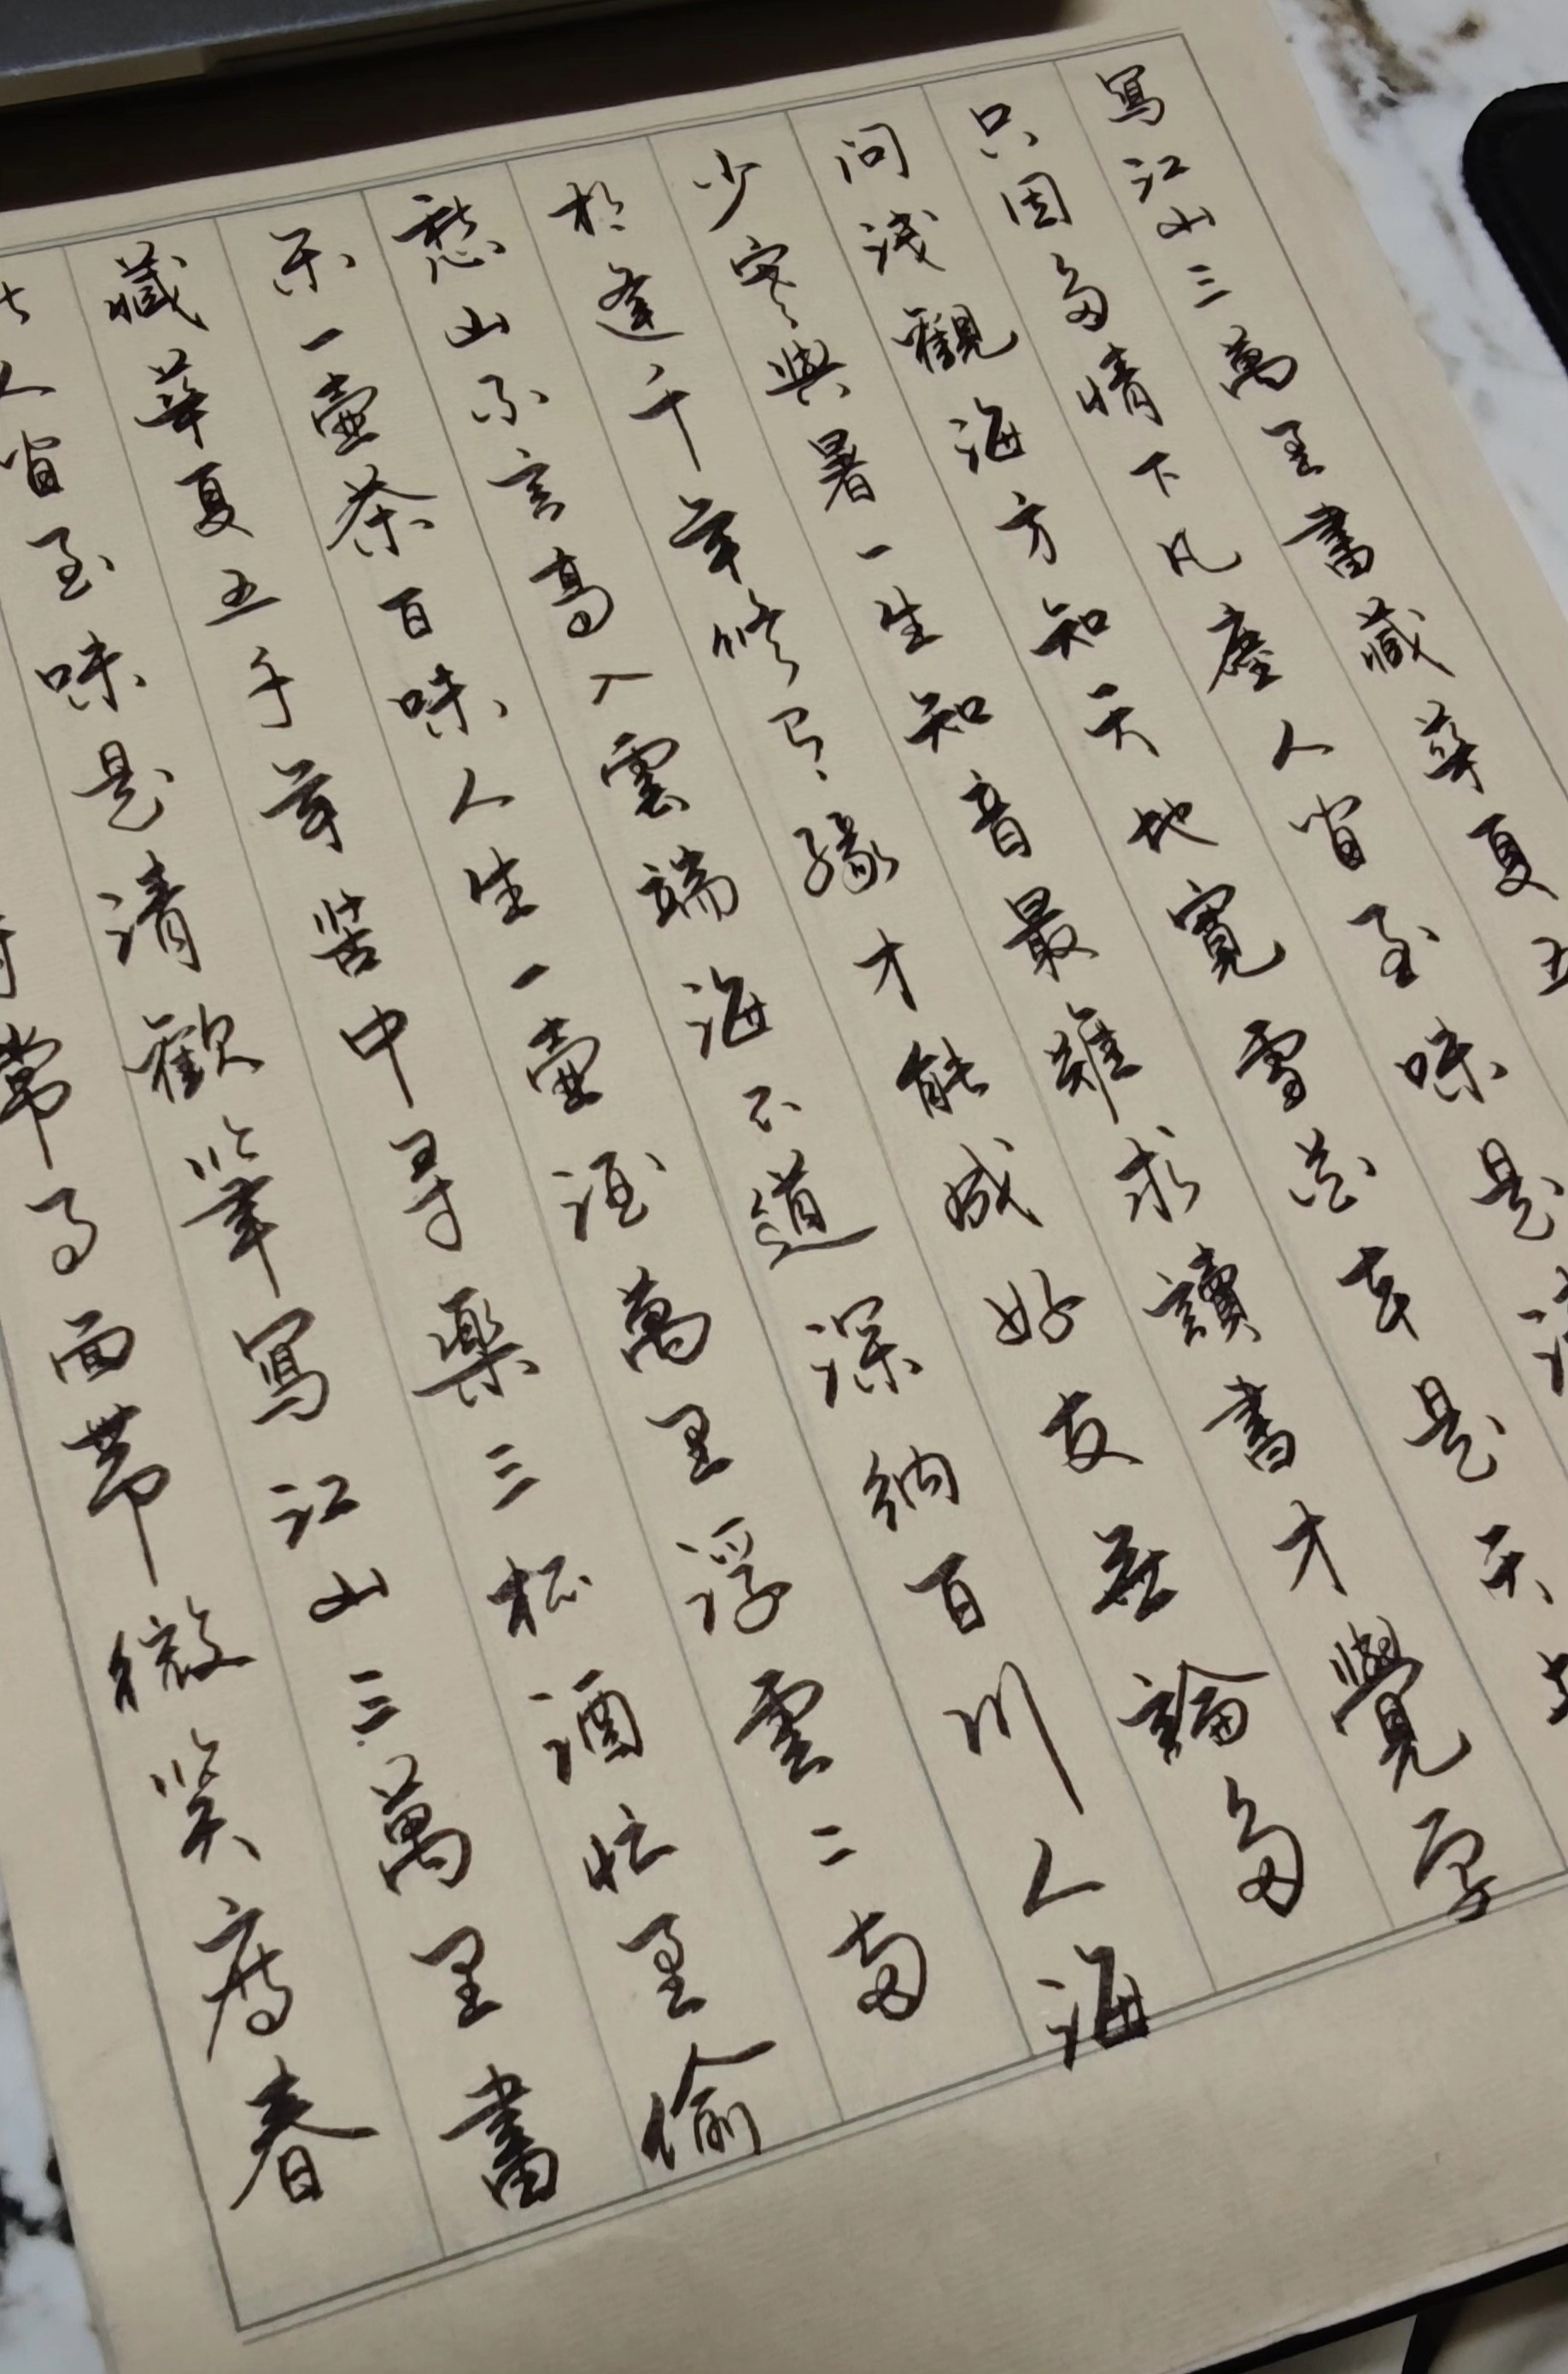 寫江山三萬里書藏華夏五
只因多情下凡塵人間至味是清
问浅觀海方知天地寬雪花本是天上
少寒與暑一生知音最難求讀書才覺学
相逢千年修了緣才能成好友無論多
愁山不言高入雲端海不道深納百川人海
乐一壺茶百味人生一壺酒萬里浮雲二両
藏華夏五千年苦中尋樂三杯酒忙里偷
人間至味是清歡筆寫江山三萬里書
常面帶微笑度春